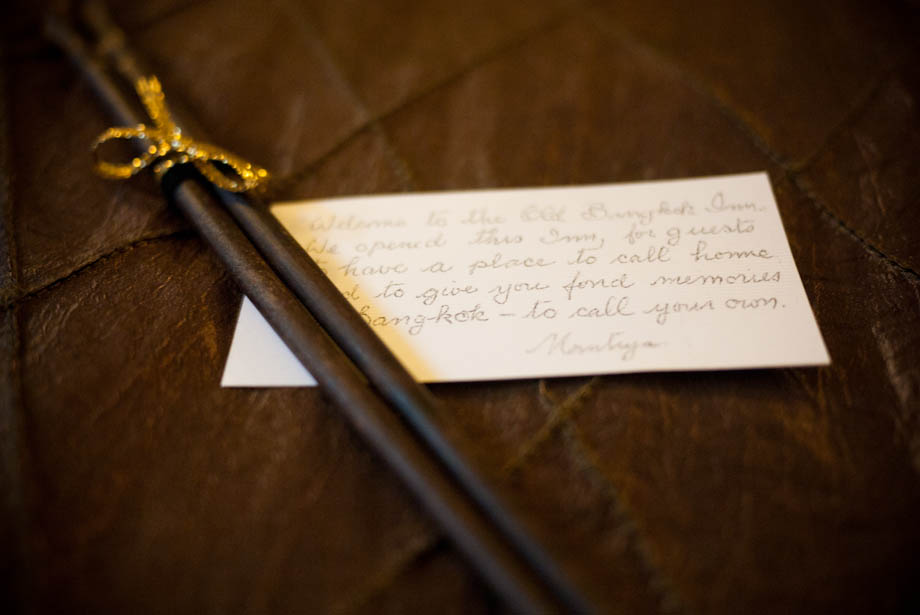 Welcome to the Old Bangkok Inn.
We opened this Inn, for guests
to have a place to call home
d to give you fond memories
Bangkok - to call your own.